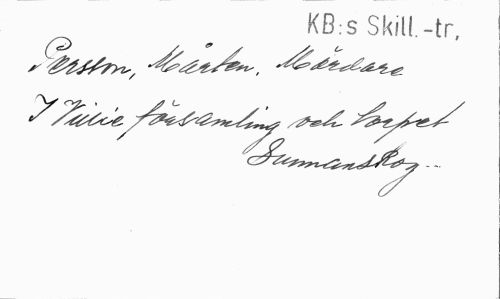 KB:s Skill.-tr,
Persson, Mårten. Mördare
I Villie församling och torpet
Sunnanskog...